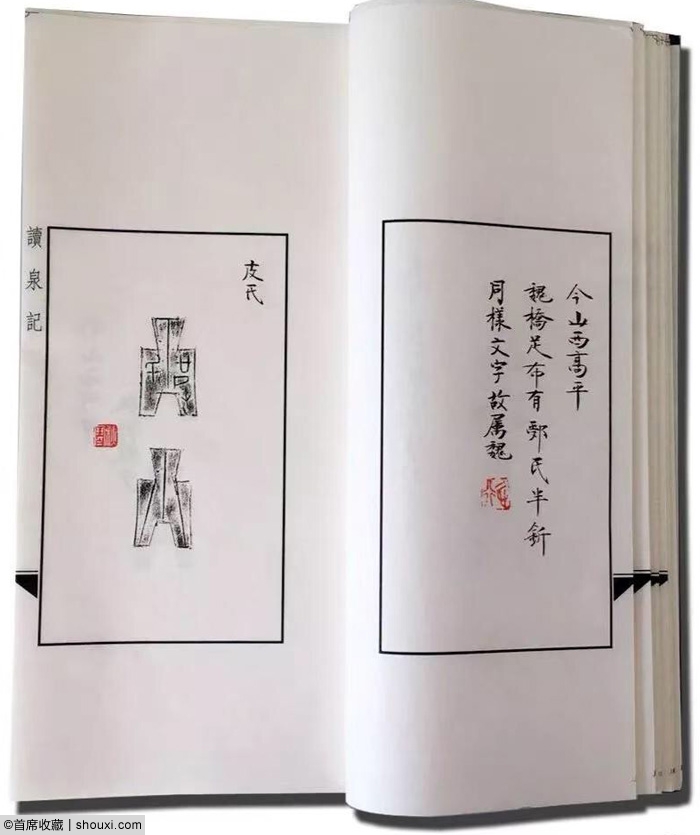 今山西高平
魏橋足布有氏半釿
同樣文字故属魏
皮氏
讀泉記
©首席收藏 | shouxi.com